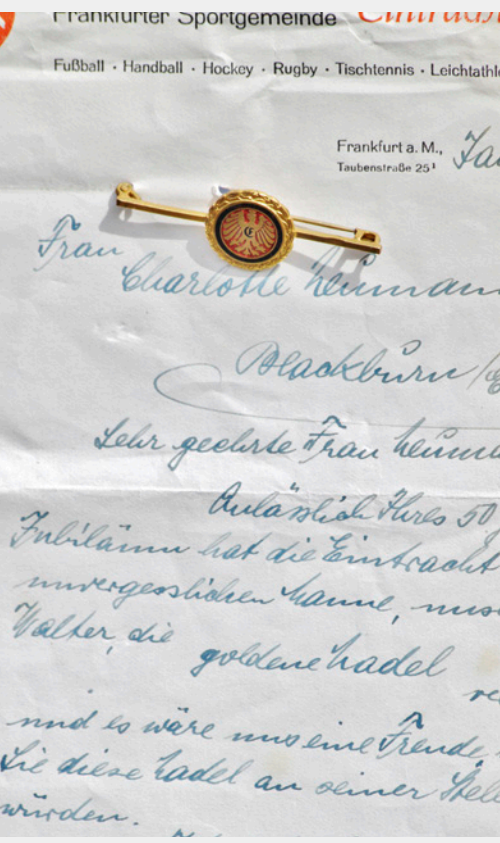 Frankfurter Sportgemeinde Eintrach
Fußball · Handball · Hockey · Rugby · Tischtennis · Leichtathle
Frankfurt a. M.,
Taubenstraße 25¹
E
Frau
Charlotte Neumann
Blackburn /
Sehr geehrte Frau Neuma
Anlässlich Ihres 50
Jubiläum hat die Eintracht
unvergesslichen Manne, uns
Walter, die goldene Nadel
ve
und es wäre uns eine Freude,
Sie diese Nadel an seiner Stell
würden.